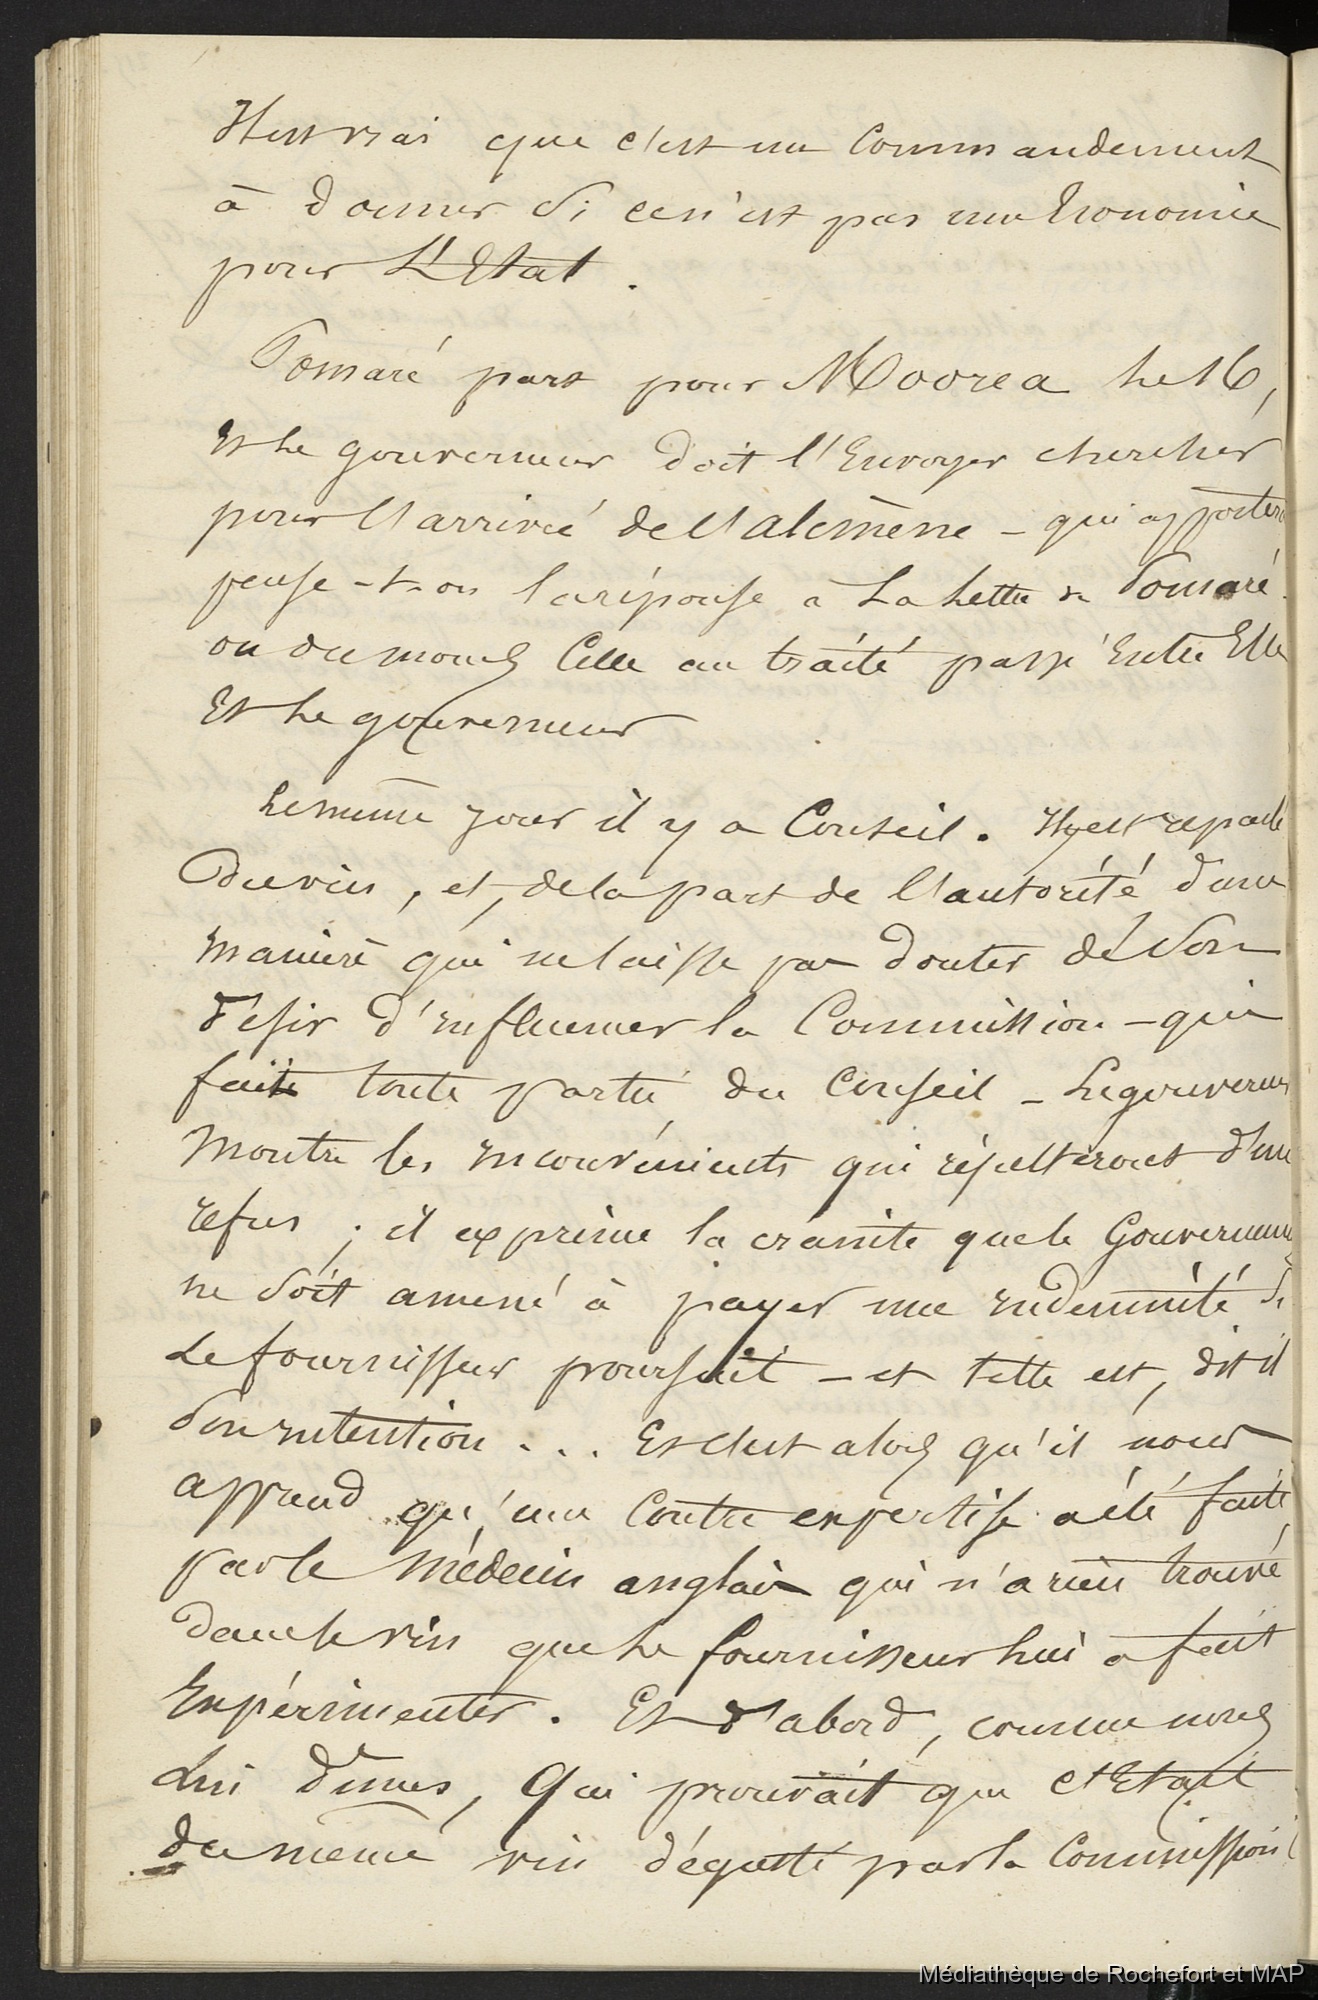 Il est vrai que c'est un Commandement
à donner si ce n'est pas une Economie
pour L'Etat.
Pomaré part pour Moorea Le 16,
Et Le gouverneur doit l'Envoyer chercher
pour l'arrivée de l'alcmène - qui apportera
pense-t-on la réponse à La Lettre de Pomaré.
ou du moins Celle au traité passé Entre Elle
Et Le gouverneur
Le même jour il y a Conseil. Il y est reparlé
Du vin, et, de la part de l'autorité d'une
manière qui ne laisse pas douter de son
désir d'influencer la Commission - qui
fait toute partie du Conseil - Le gouverneur
Montre les inconvénients qui résulteront d'un
refus ; il exprime la crainte que le Gouvernement
ne soit amené à payer une indemnité si
Le fournisseur poursuit - et telle est, dit il
son intention ... Et c'est alors qu'il nous
apprend qu'une Contre expertise a été faite
par le Médecin anglais qui n'a rien trouvé
dans le vin que Le fournisseur Lui a fait
Expérimenter. Et d'abord, comme nous
Lui dîmes, Qui prouvait que c'Etait
du même vin dégusté par la Commission
Médiathèque de Rochefort et MAP